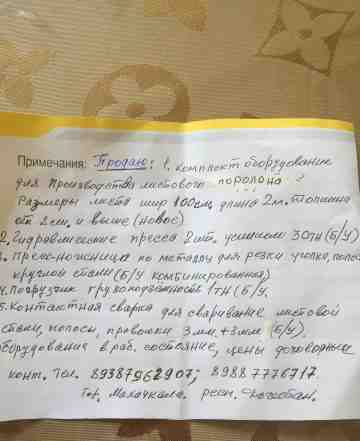 Примечания: Продаю: 1. комплект оборудование
для производства листового поролона
Размеры листа шир 100см, длина 2м. толщина
от 2см. и выше (новое)
2. Гидравлические пресса 2шт. усилием 30тн (б/у)
3. Пресс-ножница по металлу для резки уголка, полос
круглой стали (б/у комбинированная)
4. Погрузчик грузоподъемность 1тн (б/у.
5. Контактная сварка для сваривание листовой
стали, полосы, проволки 3мм.+3мм (б/у).
оборудования в раб. состояние, цены договорные
конт. тел. 89387962907; 89887776717.
гор. Махачкала. респ. Дагестан.